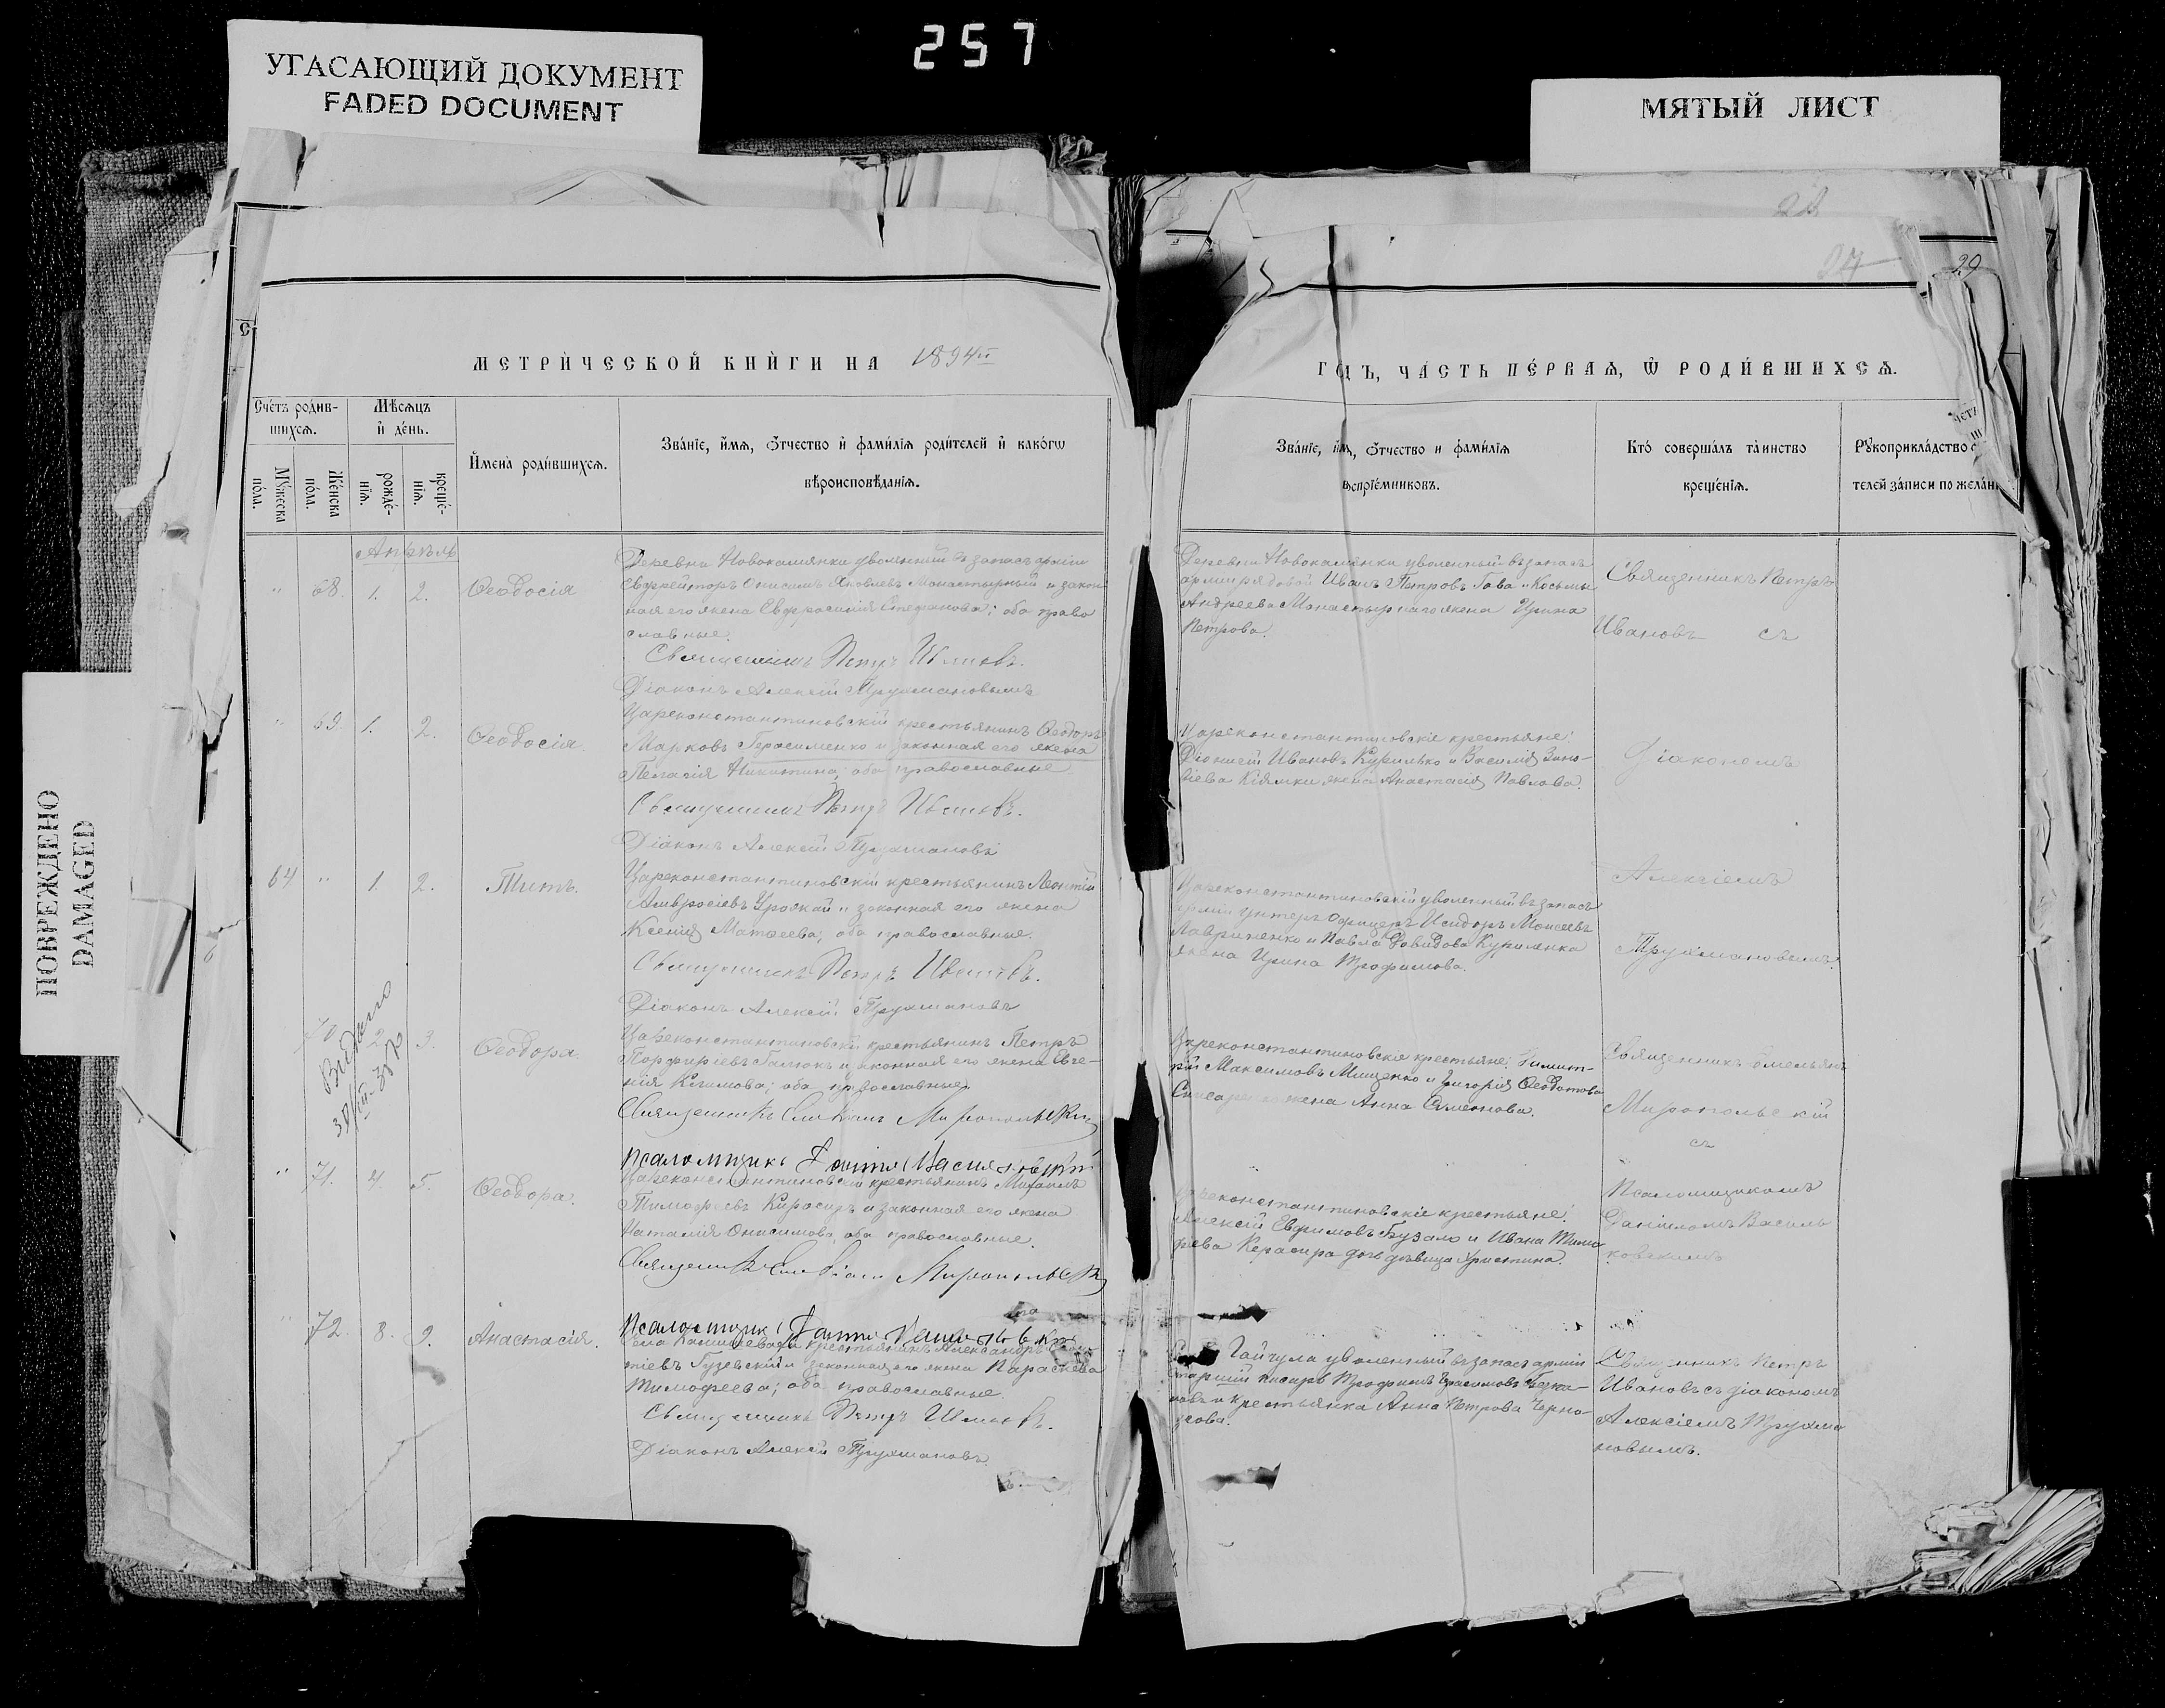 257
УГАСАЮЩИЙ ДОКУМЕНТ
FADED DOCUMENT
МЯТЫЙ ЛИСТ
ПОВРЕЖДЕНО
DAMAGED
29
МЕТРИ́ЧЕСКОЙ КНИ́ГИ НА 1894
ГО́ДЪ, ЧА́СТЬ ПЕ́РВАѦ, Ѿ РОДИ́ВШИХСѦ.
Сче́тъ роди́в-
шихсѧ.
Мѣ́сѧцъ
и҆ де́нь.
Му́жеска
по́ла.
Же́нска
по́ла.
рожде́-
нїѧ.
креще́-
нїѧ.
И҆мена̀ роди́вшихсѧ.
Зва́нїе, и҆́мѧ, ѻ҆́тчество и҆ фами́лїѧ роди́телей и҆ како́гѡ
вѣроисповѣ́данїѧ.
Зва́нїе, и҆́мѧ, ѻ҆́тчество и фами́лїѧ
воспрїе́мниковъ.
Кто̀ соверша́лъ та́инство
креще́нїѧ.
Рꙋкоприкла́дство
телей за́писи по жела́н
Апрѣль
" 68. 1. 2. Ѳеодосія
Деревни Новокаменки уволенный въ запасъ арміи
Ефрейторъ Онисимъ Яковлевъ Монастырный и закон
ная его жена Евфросинія Стефанова; оба право
славные.
Священникъ Петръ Ивановъ.
Діаконъ Алексій Тружмановымъ
Деревни Новокаменки уволенный въ запасъ
арміи рядовой Иванъ Петровъ Гава и Косьмы
Андреева Монастырнаго жена Ирина
Петрова.
Священникъ Петръ
Ивановъ съ
" 69. 1. 2. Ѳеодосія.
Цареконстантиновскій крестьянинъ Ѳеодоръ
Марковъ Герасименко и законная его жена
Пелагія Никитина; оба православные
Священникъ Петръ Ивановъ.
Діаконъ Алексій Тружмановъ
Цареконстантиновскіе крестьяне:
Діонисій Ивановъ Курилько и Василія Зино-
віева Кіяшки жена Анастасія Павлова.
Діакономъ
64 " 1. 2. Титъ.
Цареконстантиновскій крестьянинъ Леонтій
Амвросіевъ и законная его жена
Ксенія Матѳеева; оба православные.
Священникъ Петръ Ивановъ.
Діаконъ Алексій Тружмановъ
Цареконстантиновскій уволенный въ запасъ
арміи унтеръ Офицеръ Исидоръ Моисеевъ
Лавриненко и Павла Давидова Куриленка
жена Ирина Трофимова.
Алексіемъ
Тружмановымъ.
70 2. 3. Ѳеодора.
Выдано
Цареконстантиновскій крестьянинъ Петръ
Порфиріевъ Галюкъ и законная его жена Евге-
нія Климова; оба православные
Священникъ Миропольскій
Псаломщикъ
Цареконстантиновскіе крестьяне: Димит-
рій Максимовъ Мищенко и Григорія Ѳеодотова
жена Анна Симеонова.
Священникъ Омельянъ
Миропольскій
съ
" 71. 4. 5. Ѳеодора.
Цареконстантиновскій крестьянинъ Михаилъ
Тимоѳеевъ Кирасиръ и законная его жена
Наталія Онисимова, оба православные.
Священникъ Миропольскій
Псаломщикъ
Цареконстантиновскіе крестьяне:
Алексій Евфимовъ Бузало и Ивана Тимо
ѳеева Керасира дочь дѣвица Христина.
Псаломщикомъ
Даніиломъ Василь
ковскимъ
" 72. 8. 9. Анастасія.
Села крестьянинъ Александръ
тіевъ Гузевскій и законная его жена Параскева
Тимоѳеева; оба православные.
Священникъ Петръ Ивановъ.
Діаконъ Алексій Тружмановъ.
Гайчула уволенный въ запасъ арміи
старшій писарь Трофимъ Герасимовъ
новъ и крестьянка Анна Петрова Черно-
усова.
Священникъ Петръ
Ивановъ съ діакономъ
Алексіемъ Тружма
новымъ.